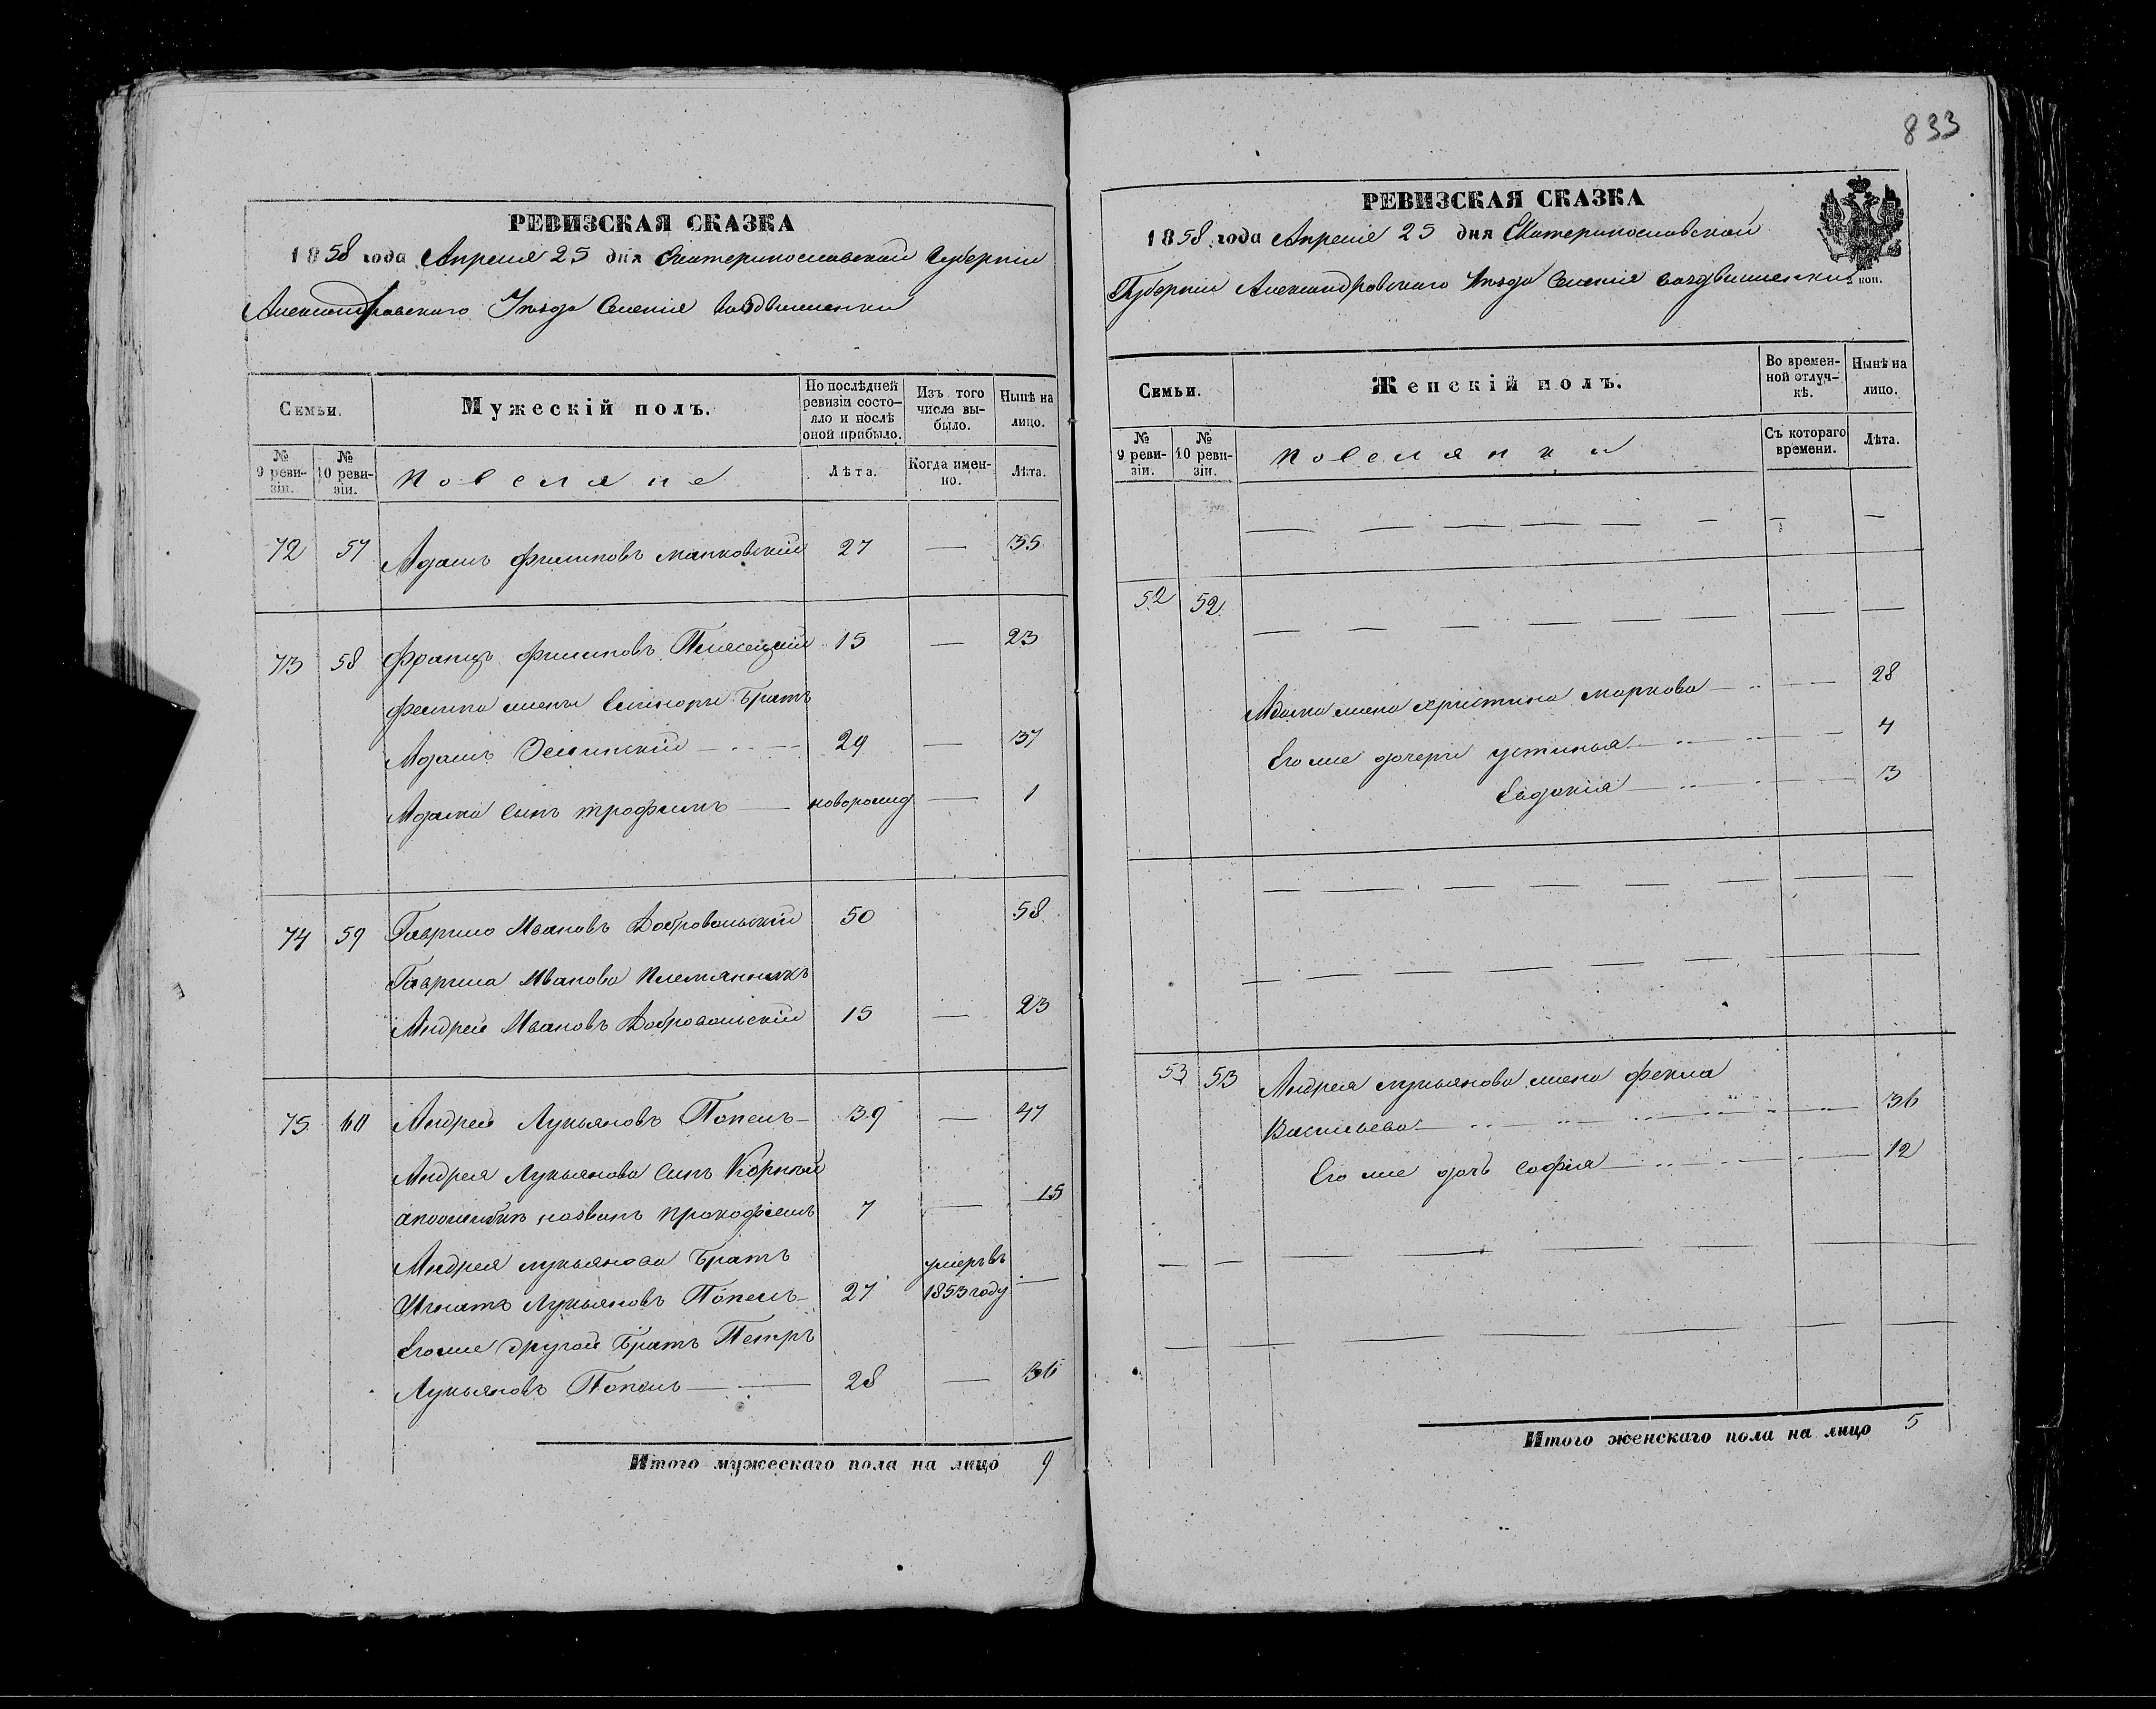 833
РЕВИЗСКАЯ СКАЗКА
1858 года Апреля 25 дня Екатеринославской Губернии
Александровского Уѣзда Селенія Воздвиженки
Семьи.
Мужескій полъ.
По послѣдней ревизіи состо-
яло и послѣ
оной прибыло.
Изъ того
числа вы-
было.
Нынѣ на
лицо.
№
9 реви-
зіи.
№
10 реви-
зіи.
Поселяне
Лѣта.
Когда имен-
но.
Лѣта.
72 57 Адамъ Филиповъ 27 — 35
73 58 Францъ Филиповъ 15 — 23
братъ
Адамъ 29 — 37
Адама сынъ Трофимъ — новорожд — 1
74 59 Гаврило Ивановъ Добровольскій 50 58
Гаврила Иванова племянникъ
Андрей Ивановъ Добровольскій 15 — 23
75 60 Андрей Лукьяновъ Попель — 39 — 47
Андрея Лукьянова сынъ Корней
названъ Прокофіемъ 7 — 15
Андрея Лукьянова братъ
Игнатъ Лукьяновъ Попель — 27 умеръ въ 1853 году —
Его же другой братъ Петръ
Лукьяновъ Попель — — 28 — 36
Итого мужескаго пола на лицо 9
РЕВИЗСКАЯ СКАЗКА
1858 года Апреля 25 дня Екатеринославской
Губернии Александровского Уѣзда Селенія Воздвиженки
2 коп.
Семьи.
Женскій полъ.
Во времен-
ной отлуч-
кѣ.
Нынѣ на
лицо.
№
9 реви-
зіи.
№
10 реви-
зіи.
Поселянки
Съ котораго
времени.
Лѣта.
52 52
Адама жена Христина Маркова — 28
Его же дочери Устинья — 4
Евдокія — 3
53 53 Андрея Лукьянова жена Фекла
Васильева — 36
Его же дочь Софія — 12
Итого женскаго пола на лицо 5